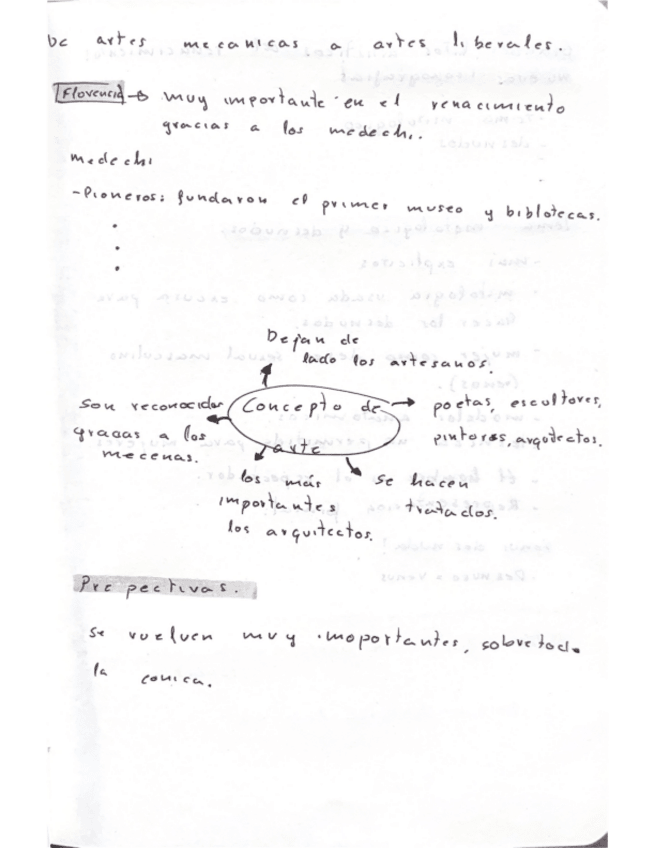 De artes mecanicas a artes liberales.
Florencia → muy importante en el renacimiento
gracias a los medechi.
medechi
- Pioneros: fundaron el primer museo y biblotecas.
Dejan de
lado los artesanos.
Son reconocidos
gracias a los
mecenas.
Concepto de
arte
poetas, escultores,
pintores, arqutectos.
los más
importantes
los arquitectos.
se hacen
tratados.
Prepectivas.
Se vuelven muy imoportantes, sobretodo
la conica.